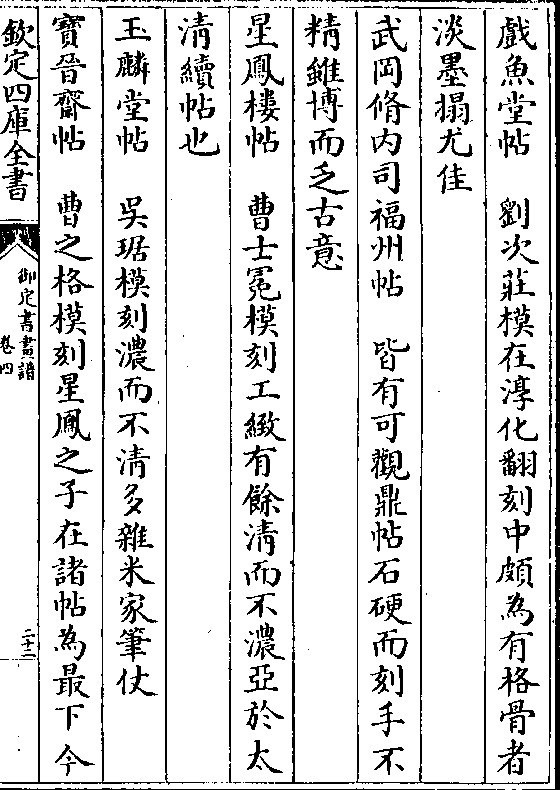 戲魚堂帖　劉次莊模在淳化翻刻中頗為有格骨者
淡墨搨尤佳
武岡脩内司福州帖　皆有可觀鼎帖石硬而刻手不
精雖博而乏古意
星鳳樓帖　曹士冕模刻工緻有餘清而不濃亞於太
清續帖也
玉麟堂帖　吳琚模刻濃而不清多雜米家筆仗
寶晉齋帖　曹之格模刻星鳳之子在諸帖為最下今
欽定四庫全書
御定書畫譜
卷四
二十二